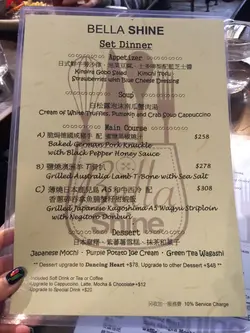 BELLA SHINE
Set Dinner
Appetizer
Kinpira Gobo Salad Kimchi Tofu
Strawberries with Blue Cheese Dressing
Soup
白松露泡沫南瓜蟹肉湯
Cream of White Truffles, Pumpkin and Crab Soup Cappuccino
Main Course
A) $258
Baked German Pork Knuckle
with Black Pepper Honey Sauce
B) $298
Grilled Australia Lamb T-Bone with Sea Salt
C) 薄燒日本鹿兒島 A5 和牛西冷 配 $308
Grilled Japanese Kagoshima A5 Wagyu Striploin
with Negitoro Donburi
Shine
Dessert
日本麻糬 ~ 紫薯薯蓉糕 ~ 抹茶和菓子
Japanese Mochi ~ Purple Potato Ice Cream ~ Green Tea Wagashi
** Dessert upgrade to Dancing Heart +$78, other Dessert upgrade +$48 **
Included Soft Drink or Tea or Coffee
Upgrade to Cappuccino, Latte, Mocha & Chocolate +$12
Upgrade to Special Drink +$22
10% Service Charge